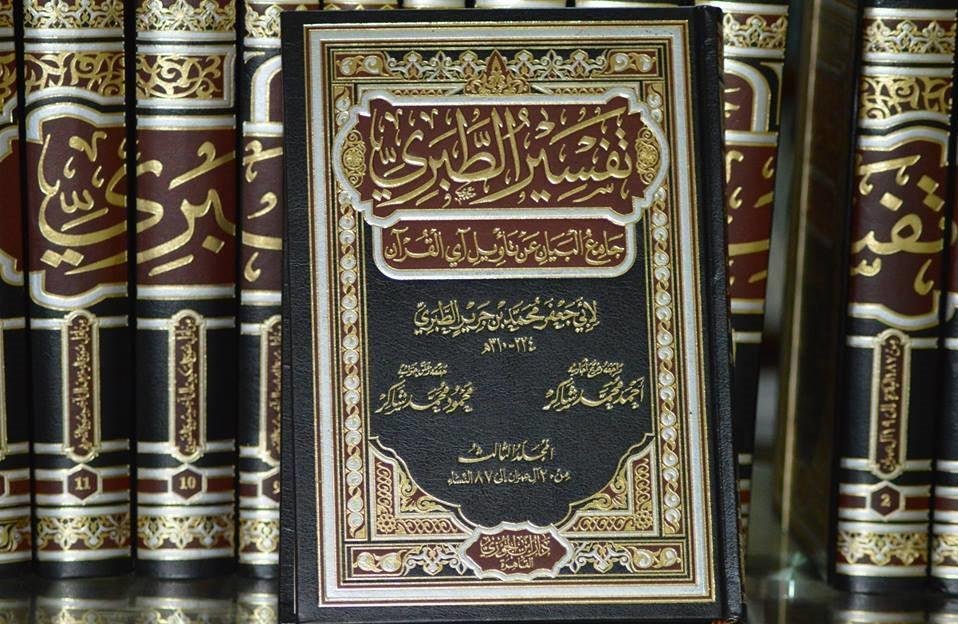 تفسير الطبري
جامع البيان عن تأويل آي القرآن
لأبي جعفر محمد بن جرير الطبري
٢٢٤-٣١٠هـ
راجعه وخرج أحاديثه
أحمد محمد شاكر
حققه وعلق حواشيه
محمود محمد شاكر
المجلد الثالث
من ٢٠ آل عمران إلى ٨٧ النساء
دار ابن الجوزي
القاهرة
11
10
2